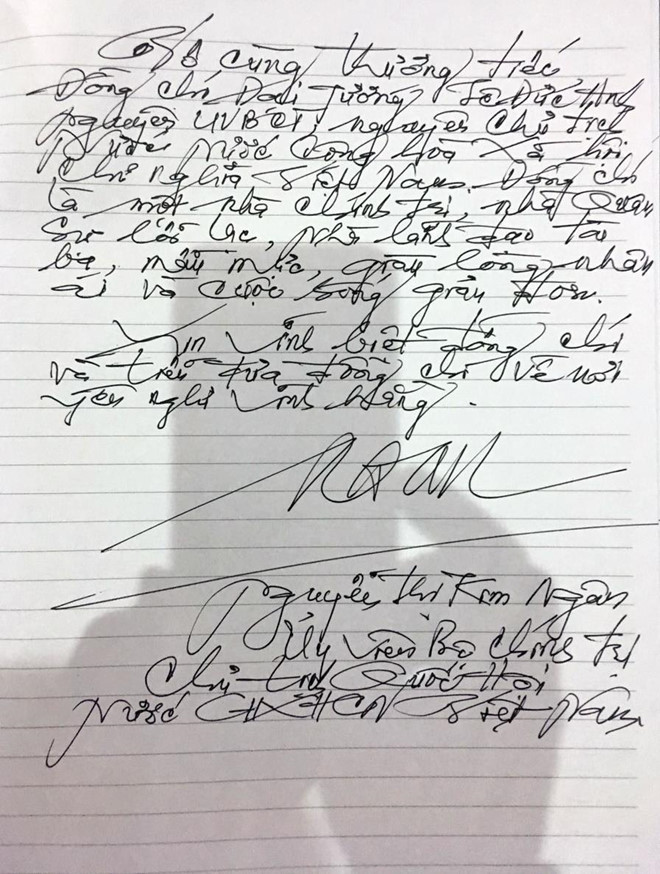 Vô cùng thương tiếc
Đồng chí Đại Tướng Lê Đức Anh
Nguyên UVBCT, nguyên Chủ tịch
Nước Cộng hòa Xã hội
Chủ nghĩa Việt Nam. Đồng chí
là một nhà Chính trị, nhà Quân
Sự lỗi lạc, nhà lãnh đạo tài
ba, mẫu mực, giàu lòng nhân
ái và cuộc sống giản đơn.
Xin vĩnh biệt đồng chí
và tiễn đưa đồng chí về nơi
yên nghỉ vĩnh hằng.
Nguyễn Thị Kim Ngân
Ủy viên Bộ Chính trị
Chủ tịch Quốc Hội
Nước CHXHCN Việt Nam